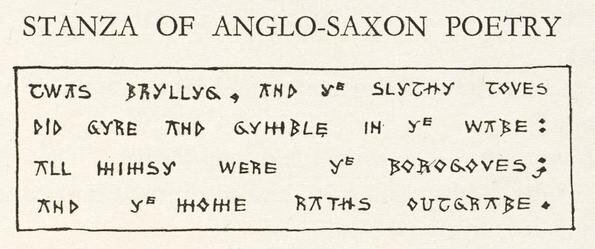 STANZA OF ANGLO-SAXON POETRY
TWAS BRYLLYG, AND Yᴱ SLYTHY TOVES
DID GYRE AND GYMBLE IN Yᴱ WABE:
ALL MIMSY WERE Yᴱ BOROGOVES;
AND Yᴱ MOME RATHS OUTGRABE.